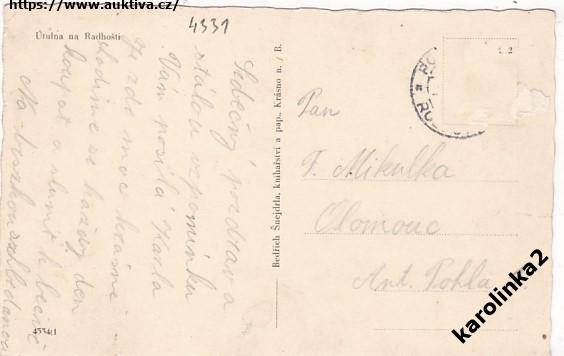 https://www.auktiva.cz/
4331
Útulna na Radhošti
Srdečný pozdrav a
stálou vzpomínku
Vám posílá
Je zde moc krásně
Chodíme se každý den
koupat a slunit k
Na
Bedřich Šnejdrla, knihařství a pap., Krásno n./B.
Pan
F. Mikulka
Olomouc
Ant. Pohla
4554/1
karolinka2